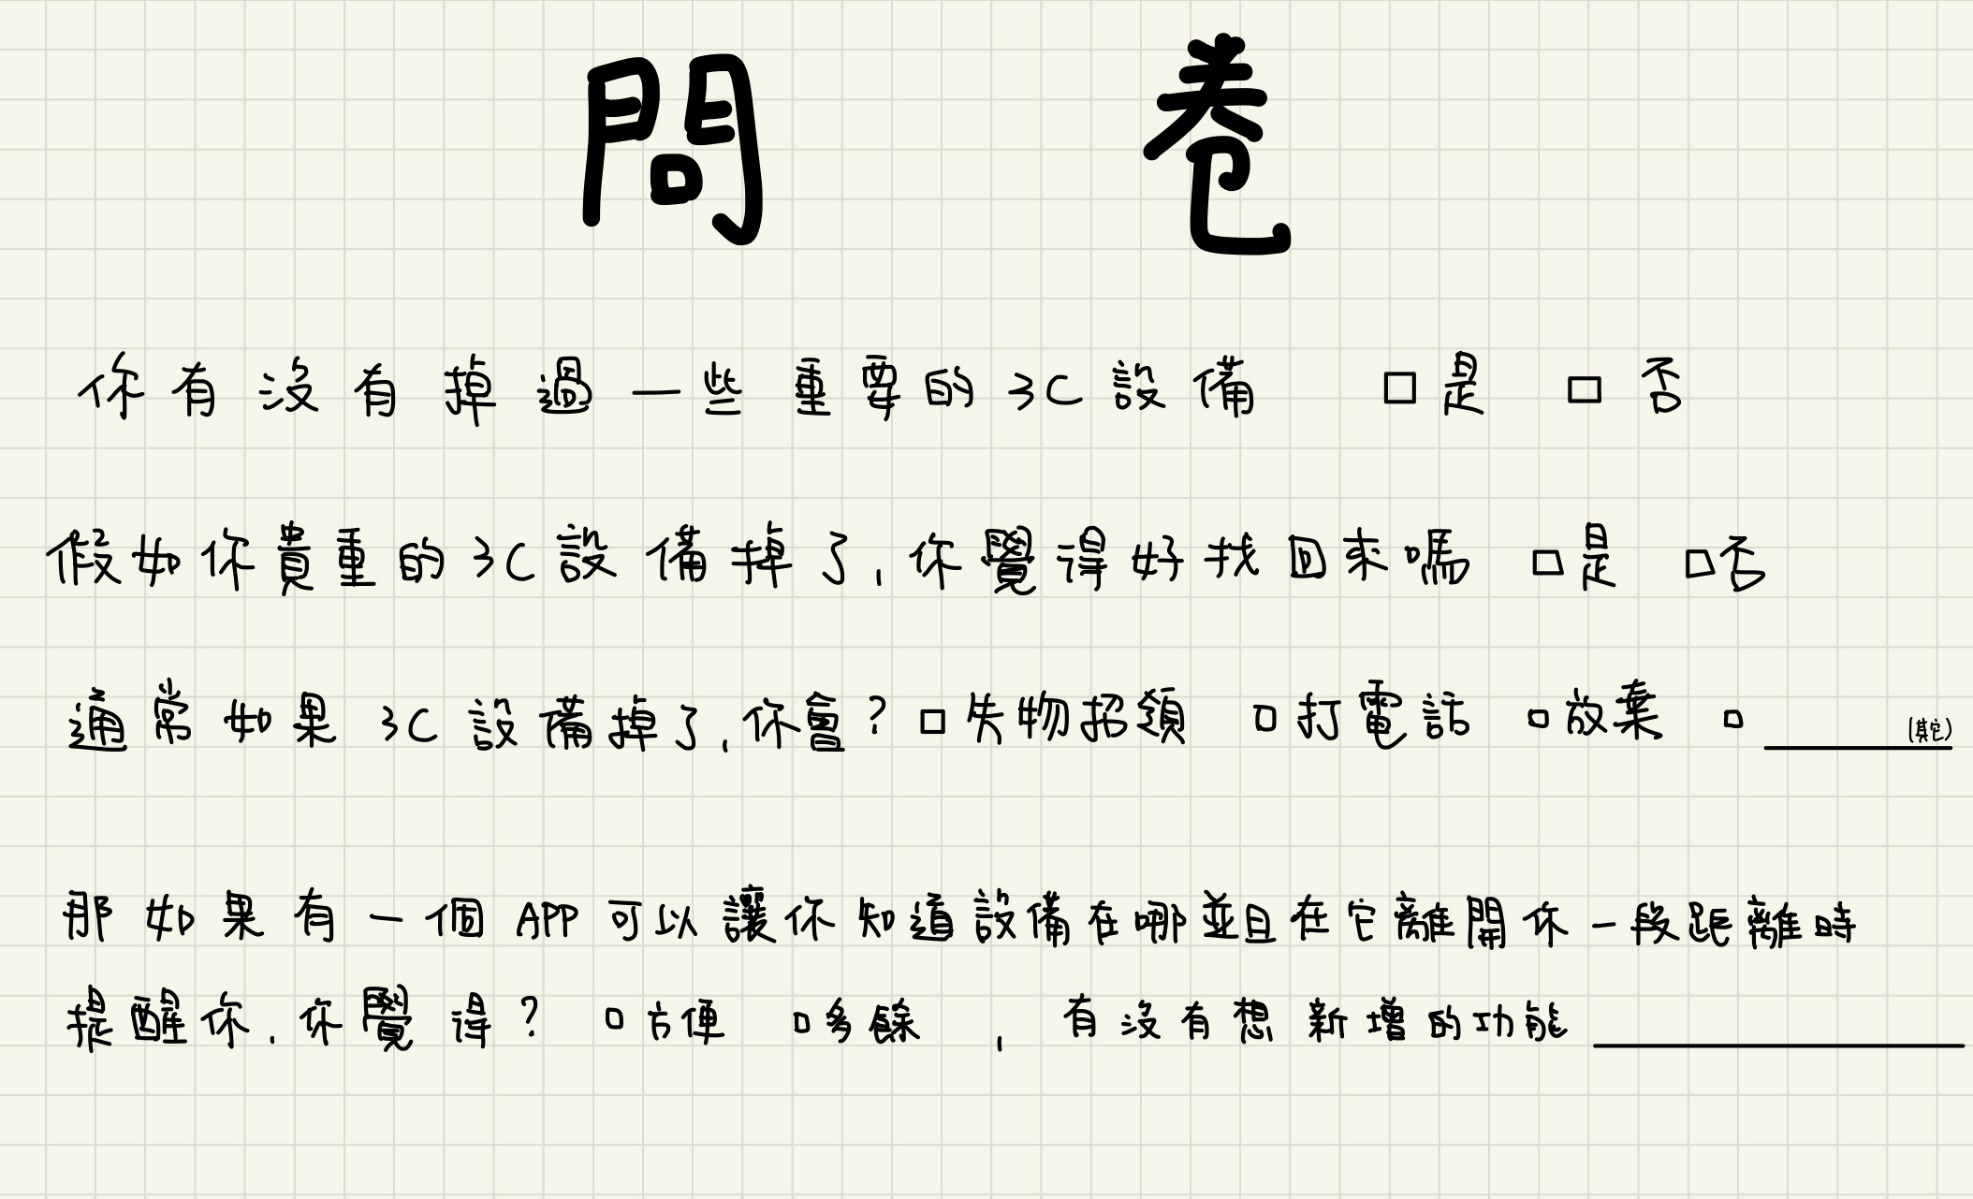 問卷
你有沒有掉過一些重要的3C設備 □是 □否
假如你貴重的3C設備掉了,你覺得好找回來嗎 □是 □否
通常如果3C設備掉了,你會?□失物招領 □打電話 □放棄 □______(其它)
那如果有一個APP可以讓你知道設備在哪並且在它離開你一段距離時
提醒你,你覺得?□方便 □多餘 ,有沒有想新增的功能______